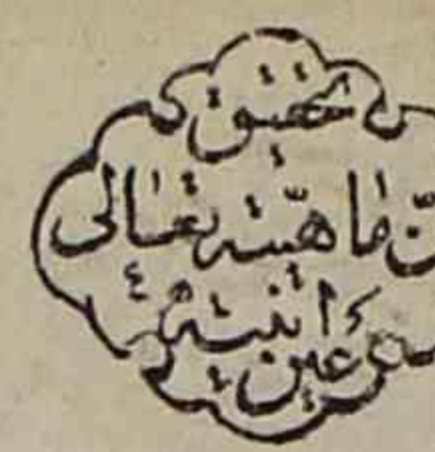 تحقيق
أنّ ماهيّته تعالى
عين انيته